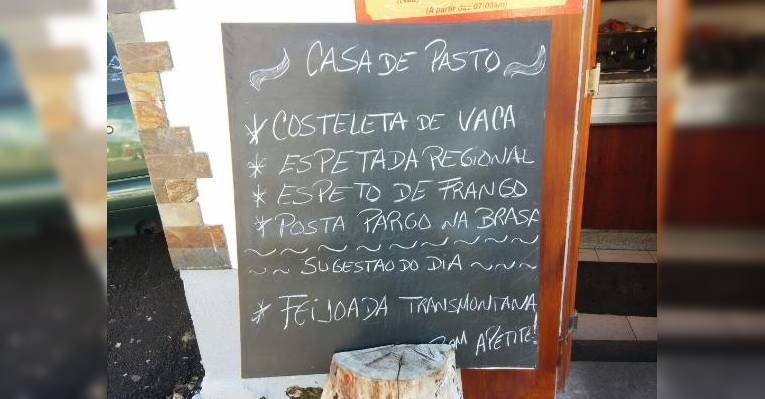 (A partir das 07:00am)
CASA DE PASTO
* COSTELETA DE VACA
* ESPETADA REGIONAL
* ESPETO DE FRANGO
* POSTA PARGO NA BRASA
~ ~ ~ ~ ~ ~ ~ ~ ~
~ ~ SUGESTAO DO DIA ~ ~ ~
* FEIJOADA TRANSMONTANA
BOM APETITE!